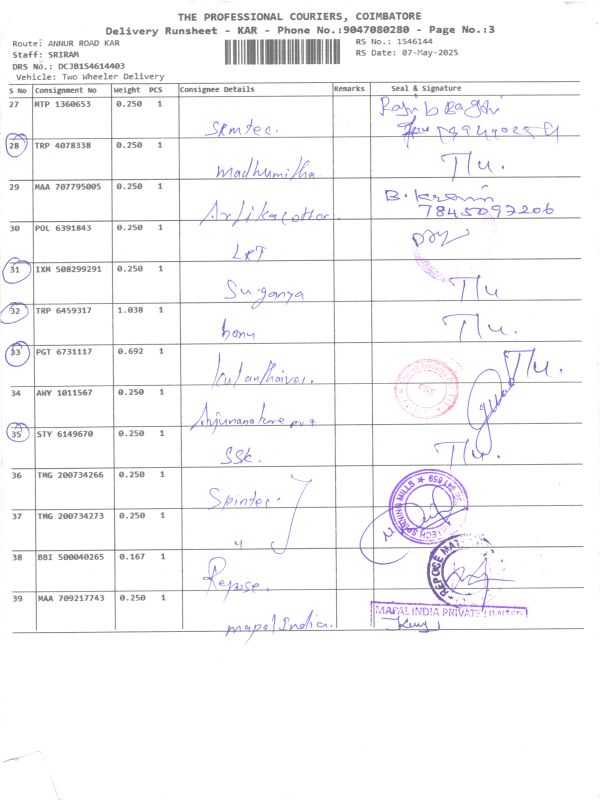 THE PROFESSIONAL COURIERS, COIMBATORE
Delivery Runsheet - KAR - Phone No.:9047080280 - Page No.:3
Route: ANNUR ROAD KAR
RS No.: 1546144
Staff: SRIRAM
RS Date: 07-May-2025
DRS No.: DCJB154614403
Vehicle: Two Wheeler Delivery
S No Consignment No Weight PCS Consignee Details Remarks Seal & Signature
27 MTP 1360653 0.250 1
Spmtec.
28 TRP 4078338 0.250 1
madhumitha. T/u.
29 MAA 707795005 0.250 1
B.
7845097206
30 POL 6391843 0.250 1
LRT
31 IXM 508299291 0.250 1
Suganya T/u
32 TRP 6459317 1.038 1
banu T/u.
33 PGT 6731117 0.692 1
T/u.
34 AWY 1011567 0.250 1
35 STY 6149670 0.250 1
SSK. T/u.
36 TMG 200734266 0.250 1
Spintec.
37 TMG 200734273 0.250 1
"
38 BBI 500040265 0.167 1
Repose.
REPOSE
39 MAA 709217743 0.250 1
MAPAL INDIA PRIVATE LIMITED
mapal India.